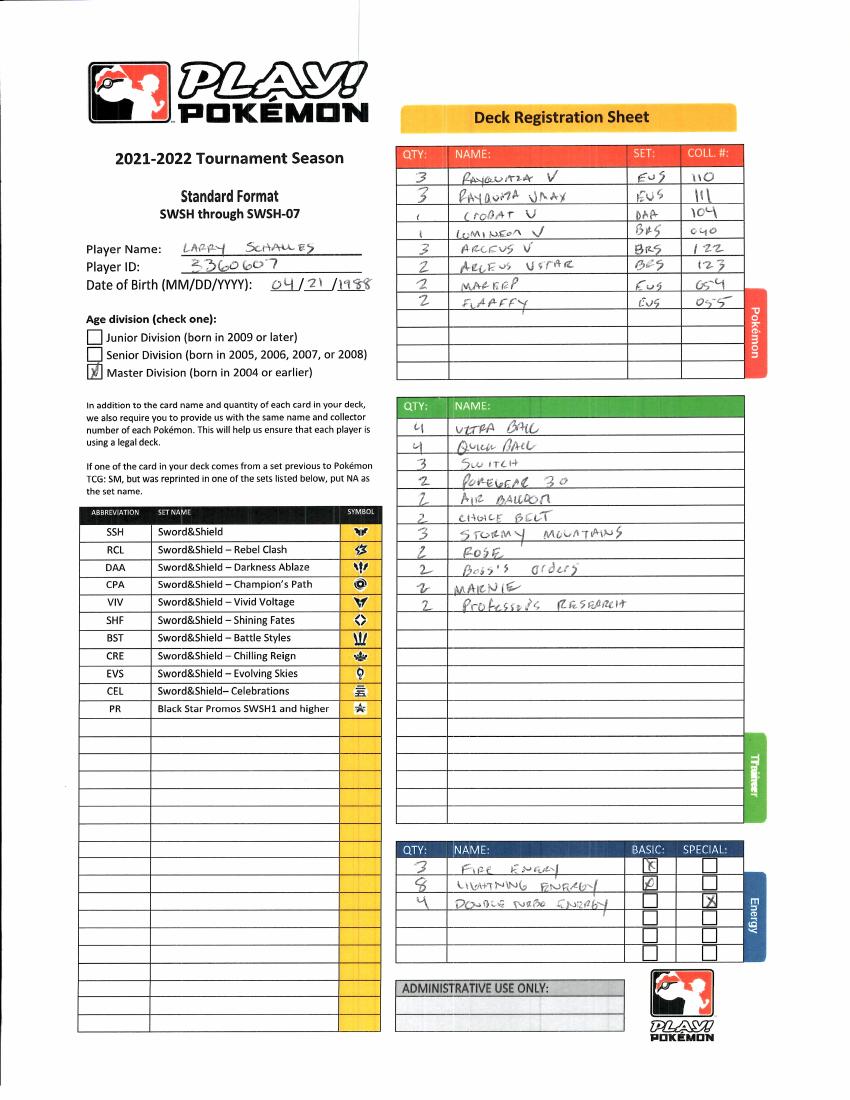 PLAY!
POKÉMON
2021-2022 Tournament Season
Standard Format
SWSH through SWSH-07
Player Name: LARRY SCHALLES
Player ID: 3360607
Date of Birth (MM/DD/YYYY): 04/21/1988
Age division (check one):
Junior Division (born in 2009 or later)
Senior Division (born in 2005, 2006, 2007, or 2008)
Master Division (born in 2004 or earlier)
In addition to the card name and quantity of each card in your deck,
we also require you to provide us with the same name and collector
number of each Pokémon. This will help us ensure that each player is
using a legal deck.
If one of the card in your deck comes from a set previous to Pokémon
TCG: SM, but was reprinted in one of the sets listed below, put NA as
the set name.
ABBREVIATION SET NAME SYMBOL
SSH Sword&Shield
RCL Sword&Shield – Rebel Clash
DAA Sword&Shield – Darkness Ablaze
CPA Sword&Shield – Champion's Path
VIV Sword&Shield – Vivid Voltage
SHF Sword&Shield – Shining Fates
BST Sword&Shield – Battle Styles
CRE Sword&Shield – Chilling Reign
EVS Sword&Shield – Evolving Skies
CEL Sword&Shield– Celebrations
PR Black Star Promos SWSH1 and higher
Deck Registration Sheet
QTY: NAME: SET: COLL. #:
3 RAYQUAZA V EVS 110
3 RAYQUAZA VMAX EVS 111
1 CROBAT V DAA 104
1 LUMINEON V BRS 040
3 ARCEUS V BRS 122
2 ARCEUS VSTAR BRS 123
2 MAREEP EVS 054
2 FLAAFFY EVS 055
Pokémon
QTY: NAME:
4 ULTRA BALL
4 QUICK BALL
3 SWITCH
2 POKEGEAR 30
2 AIR BALLOON
2 CHOICE BELT
3 STORMY MOUNTAINS
2 ROSE
2 Boss's Orders
2 MARNIE
2 Professor's RESEARCH
Trainer
QTY: NAME: BASIC: SPECIAL:
3 FIRE ENERGY
8 LIGHTNING ENERGY
4 DOUBLE TURBO ENERGY
Energy
ADMINISTRATIVE USE ONLY:
PLAY!
POKÉMON